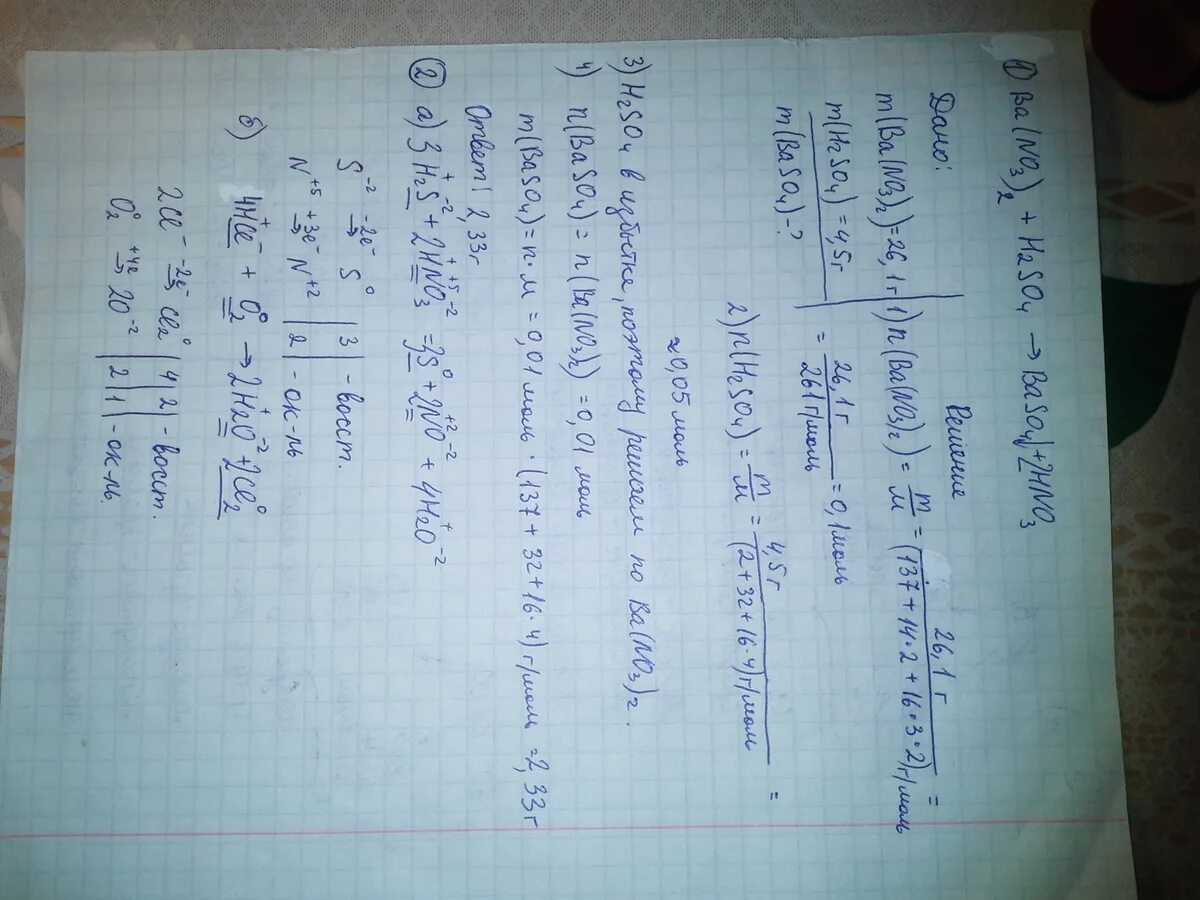 ① Ba(NO₃)₂ + H₂SO₄ → BaSO₄↓ + 2HNO₃
Дано:
m(Ba(NO₃)₂) = 26,1 г
m(H₂SO₄) = 4,5 г
m(BaSO₄) - ?
Решение
1) n(Ba(NO₃)₂) = m/M = 26,1 г / (137 + 14·2 + 16·3·2) г/моль =
= 26,1 г / 261 г/моль = 0,1 моль
2) n(H₂SO₄) = m/M = 4,5 г / (2 + 32 + 16·4) г/моль =
≈ 0,05 моль
3) H₂SO₄ в избытке, поэтому решаем по Ba(NO₃)₂.
4) n(BaSO₄) = n(Ba(NO₃)₂) = 0,01 моль
m(BaSO₄) = n·M = 0,01 моль · (137 + 32 + 16·4) г/моль = 2,33 г
Ответ: 2,33 г
② а) 3H₂⁺S⁻² + 2H⁺N⁺⁵O₃⁻² = 3S⁰ + 2N⁺²O⁻² + 4H₂⁺O⁻²
S⁻² -2e⁻→ S⁰ | 3 | - восст.
N⁺⁵ +3e⁻→ N⁺² | 2 | - ок-ль
б) 4H⁺Cl⁻ + O₂⁰ → 2H₂⁺O⁻² + 2Cl₂⁰
2Cl⁻ -2e⁻→ Cl₂⁰ | 4 | 2 | - восст.
O₂⁰ +4e→ 2O⁻² | 2 | 1 | - ок-ль.